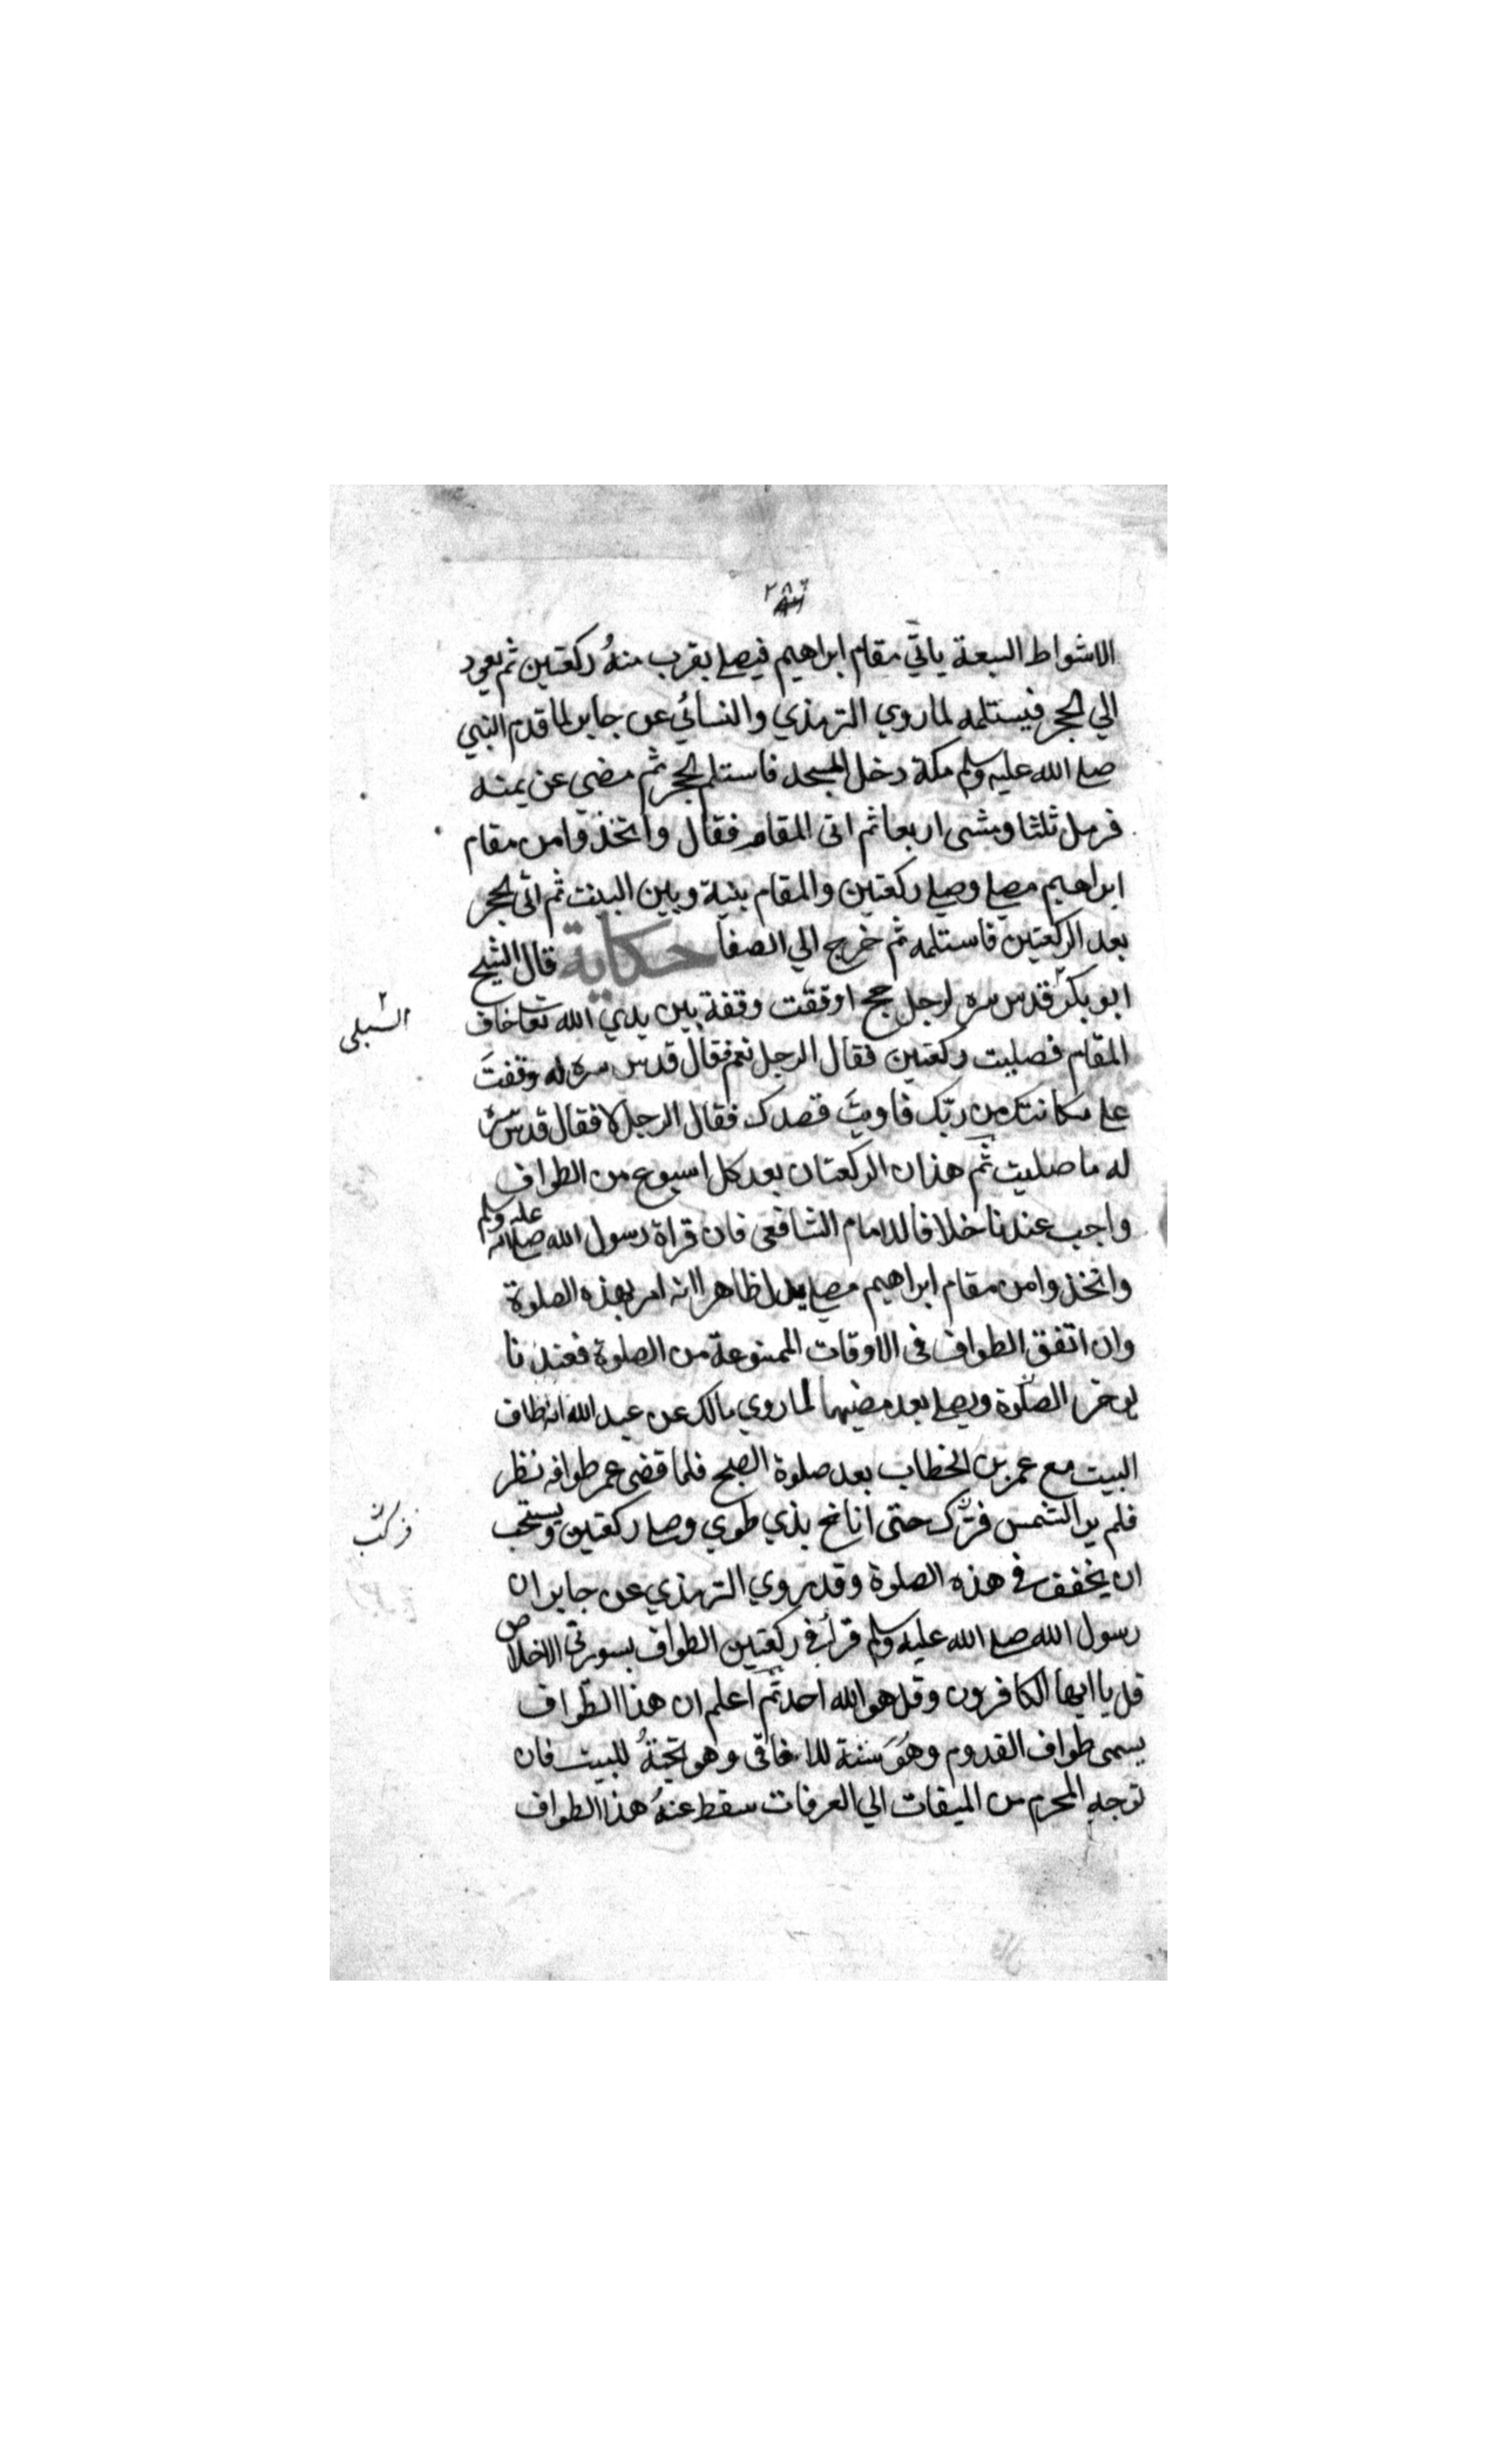 الاشواط السبعة ياتي مقام ابراهيم فيصلي بقرب منهُ ركعتين ثم يعود
الي الحجر فيستلمه لما روي الترمذي والنسائي عن جابر لما قدم النبي
صلي الله عليه وسلم مكة دخل المسجد فاستلم الحجر ثم مضي عن يمنه
فرمل ثلثا ومشى اربعا ثم اتى المقام فقال واتخذوا من مقام
ابراهيم مصلي وصلي ركعتين والمقام بنية وبين البيت ثم اتى الحجر
بعد الركعتين فاستلمه ثم خرج الي الصفا حكاية قال الشيخ
ابو بكر٢ قدس سره لرجل حج اوقفت وقفة بين يدي الله تعا خاف
الشبلي ٢
المقام فصليت ركعتين فقال الرجل نعم فقال قدس سره له وقفتَ
علي مكانتك من ربك فاويتَ قصدك فقال الرجل لا فقال قدس سره
له ما صليت ثم هذان الركعتان بعد كل اسبوع من الطواف
واجب عندنا خلافا للامام الشافعي فان قراة رسول الله صلي الله عليه وسلم
واتخذوا من مقام ابراهيم مصلي يدل ظاهرا انه امر بهذه الصلوة
وان اتفق الطواف في الاوقات الممنوعة من الصلوة فعندنا
يوخر الصلوة ويصلي بعد مضيها لما روي مالك عن عبد الله انه طاف
البيت مع عمر بن الخطاب بعد صلوة الصبح فلما قضى عمر طوافه نظر
فلم ير الشمس فركب حتى اناخ بذي طوي وصلي ركعتين ويستحب
فركب
ان يخفف في هذه الصلوة وقد روي الترمذي عن جابر ان
رسول الله صلي الله عليه وسلم قرأ في ركعتين الطواف بسورتي الاخلاص
قل يا ايها الكافرون وقل هو الله احد ثم اعلم ان هذا الطواف
يسمى طواف القدوم وهُوَ سنة للافاقي وهو تحيةُ للبيت فان
توجه المحرم من الميقات الي العرفات سقط عنهُ هذا الطواف